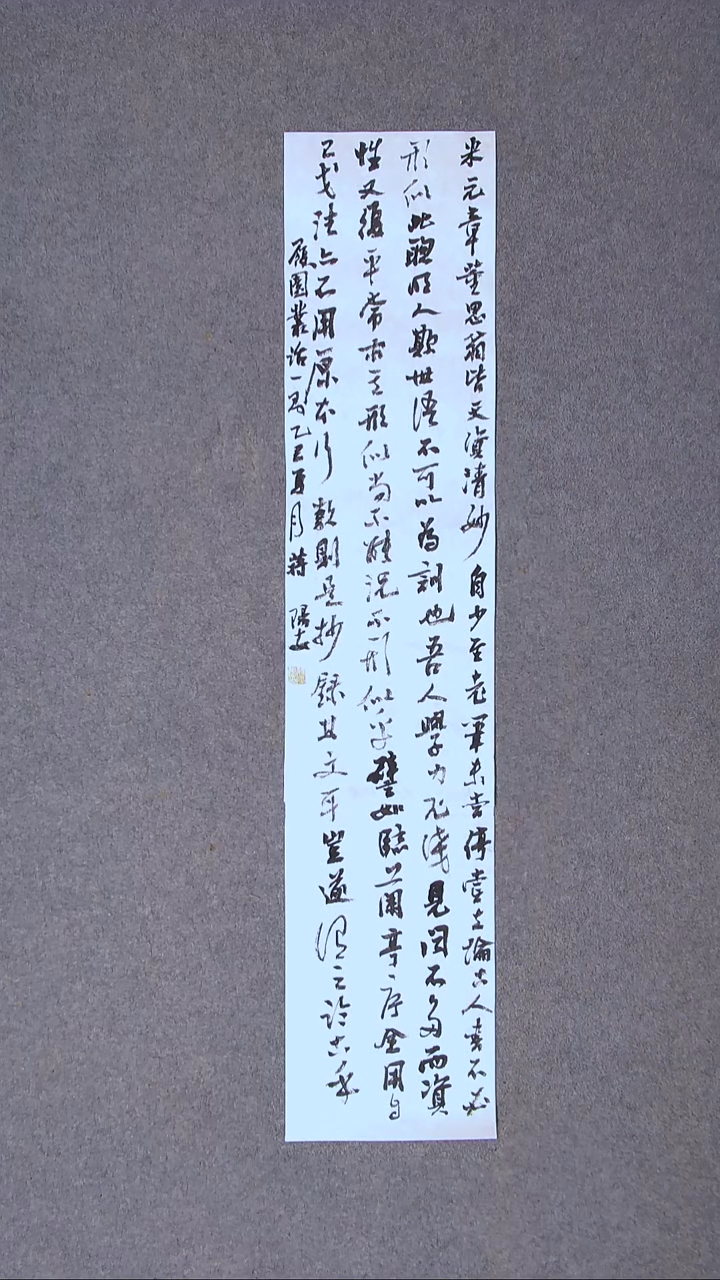 米元章董思翁皆天資清妙自少至老筆未嘗停嘗立論古人書不必
形似此聰明人欺世語不可以為訓也吾人學力既淺見聞不多而資
性又復平常求其形似尚不能況不形似乎譬如臨蘭亭序全用自
己戈法亦不用原本行款則是抄錄其文耳豈遂謂之臨古乎
履園叢話一則乙巳夏月蔣